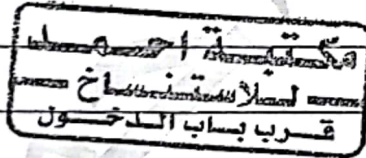 مكتبة احمد
للاستنساخ
قرب باب الدخول